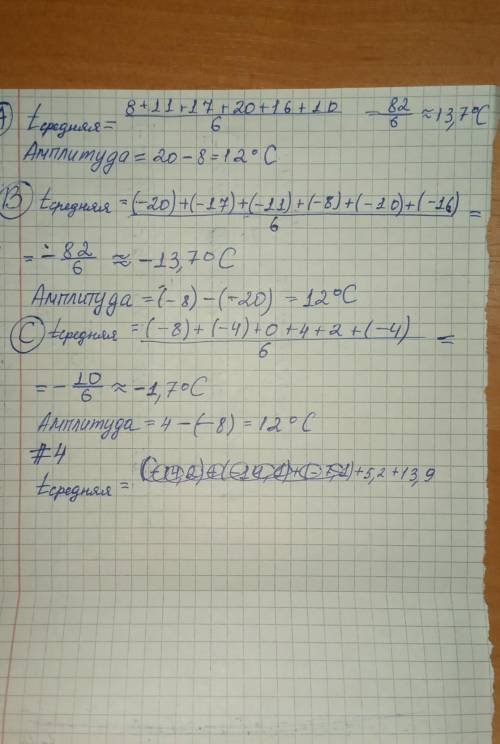 A) tсредняя = 8+11+17+20+16+10 / 6 = 82/6 ≈ 13,7°C
Амплитуда = 20 - 8 = 12°C
B) tсредняя = (-20)+(-17)+(-11)+(-8)+(-10)+(-16) / 6 =
= -82/6 ≈ -13,7°C
Амплитуда = (-8) - (-20) = 12°C
C) tсредняя = (-8)+(-4)+0+4+2+(-4) / 6 =
= -10/6 ≈ -1,7°C
Амплитуда = 4 - (-8) = 12°C
#4
tсредняя = +5,2+13,9